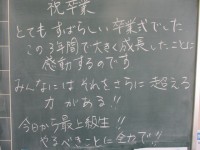 祝卒業
とてもすばらしい卒業式でした
この3年間で大きく成長したことに
感動するのです
みんなにはそれをさらに超える
力がある!!
今日から最上級生!!
やるべきことに全力で!!